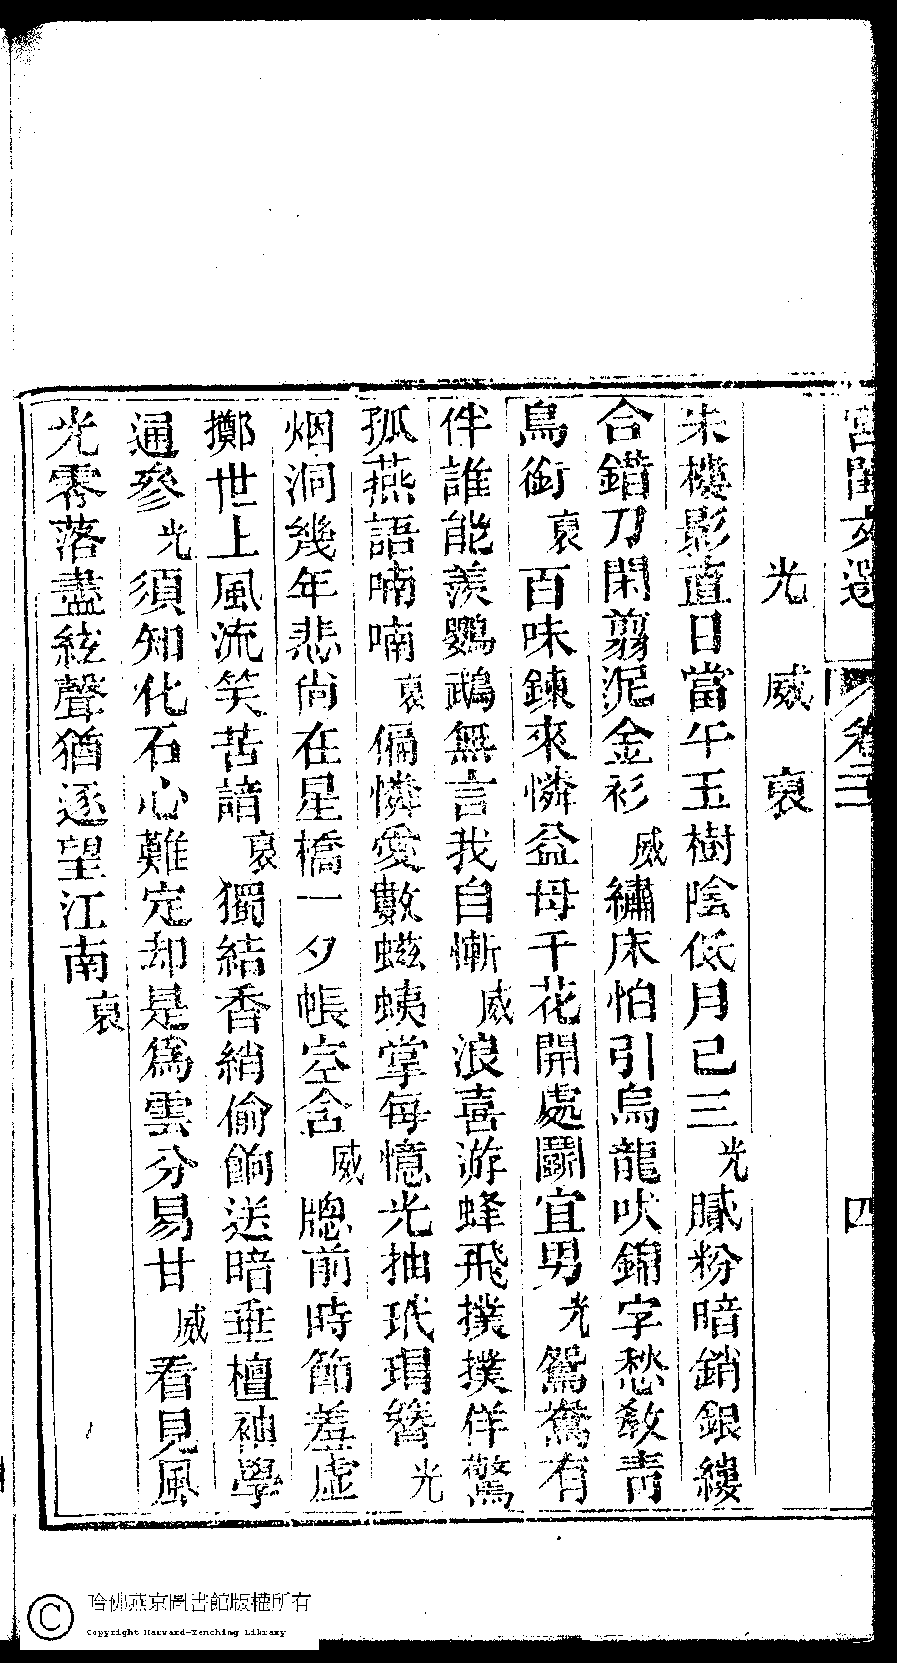 宮閨文選 卷三 四
光 威 裒
朱樓影直日當午玉樹陰低月已三光膩粉暗銷銀縷
合錯刀閑翦泥金衫威繡床怕引烏龍吠錦字愁教靑
鳥銜裒百味鍊來憐益母千花開處鬭宜男光鴛鴦有
伴誰能羨鸚鵡無言我自慚威浪喜游蜂飛撲撲佯驚
孤燕語喃喃裒偏憐愛數蟙蛦掌每憶光抽玳瑁簪光
烟洞幾年悲尙在星橋一夕帳空含威牕前時節羞虛
擲世上風流笑苦諳裒獨結香綃偷餉送暗垂檀袖學
通參光須知化石心難定却是爲雲分易甘威看見風
光零落盡絃聲猶逐望江南裒
哈佛燕京圖書館版權所有
Copyright Harvard-Yenching Library